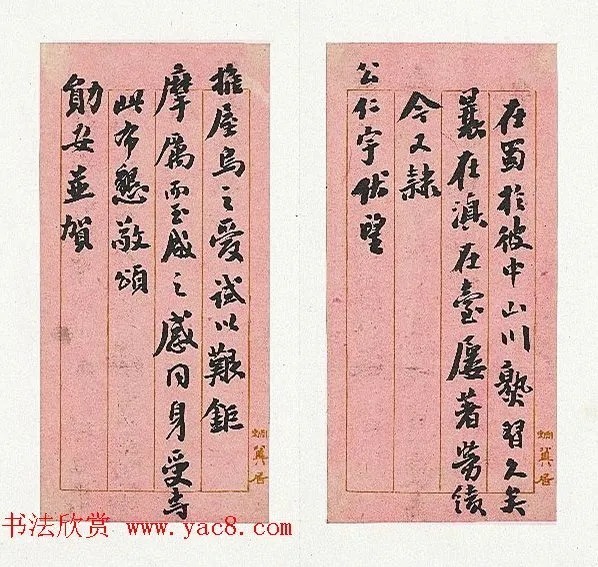 在蜀於彼中山川熟習久矣
曩在滇在臺屢著勞績
今又隸
公仁宇伏望
蜩巽居
推屋烏之愛試以艱鉅
摩厲而玉成之感同身受專
此布懇敬頌
勛安並賀
蜩巽居
书法欣赏 www.yac8.com